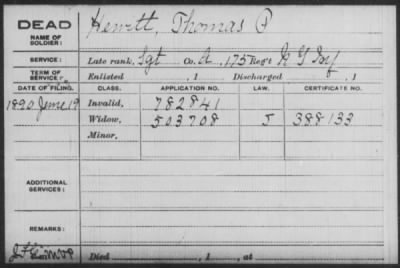 DEAD
NAME OF SOLDIER: Hewitt, Thomas P
SERVICE: Late rank, Sgt Co. A, 175 Reg't N Y Inf
TERM OF SERVICE: Enlisted , 1 Discharged , 1
DATE OF FILING. CLASS. APPLICATION NO. LAW. CERTIFICATE NO.
1890 June 19 Invalid, 782841
Widow, 503708 J 388133
Minor,
ADDITIONAL SERVICES:
REMARKS:
Died , 1 , at